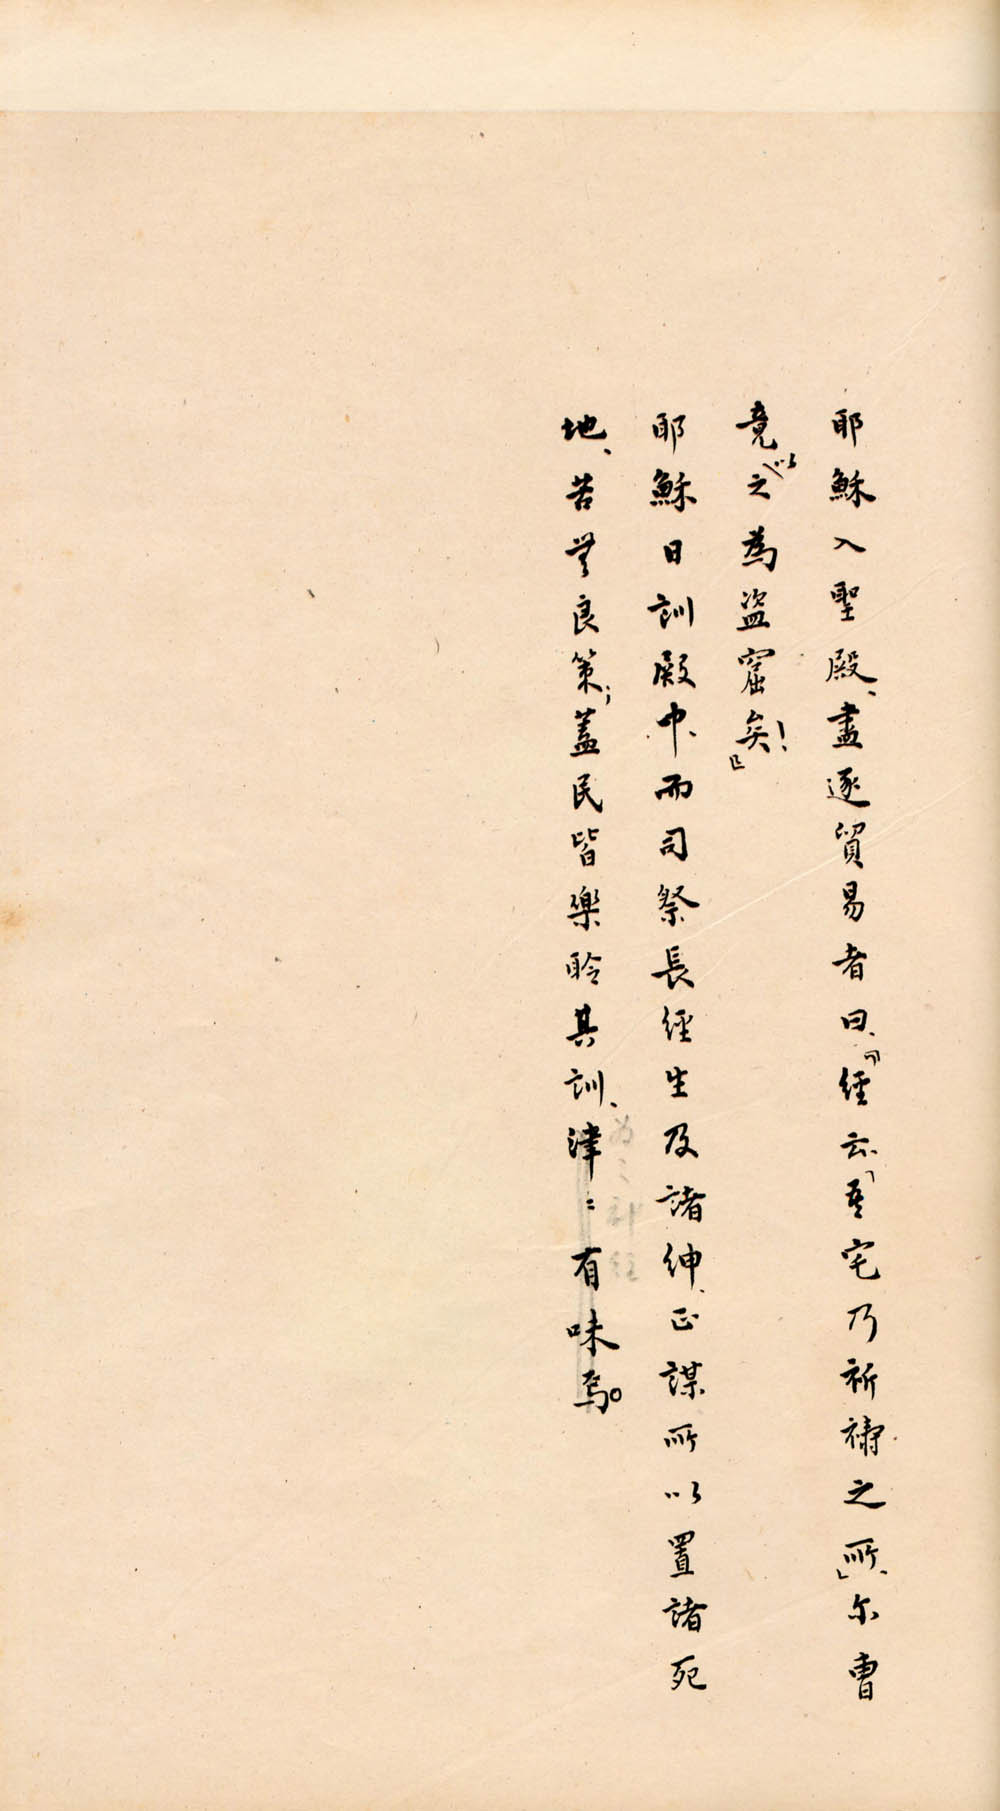 耶穌入聖殿、盡逐貿易者曰、『經云、「吾宅乃祈禱之所、」尔曹
竟以之為盜窟矣！』
耶穌日訓殿中、而司祭長經生及諸紳、正謀所以置諸死
地、苦無良策；蓋民皆樂聆其訓、津〻有味焉。